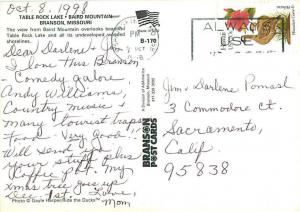 Oct. 8, 1998
TABLE ROCK LAKE • BAIRD MOUNTAIN
BRANSON, MISSOURI
The view from Baird Mountain overlooks beautiful
Table Rock Lake and its undeveloped wooded
shorelines.
Dear Darlene & Jim,
I love this Branson
Comedy galore
Andy Williams,
Country music &
many tourist traps
Food - Very Good!!
Will send you
your stuff plus
Coffee pot. My
xmas tree goes up
Dec. 1st. Love,
Mom
Photo © Gayle Harper/Ride the Ducks
B-170
BRANSON
POSTCARDS
PM
OCT
ALWAYS
USE
Jim & Darlene Pomash
3 Commodore Ct.
Sacramento,
Calif.
95838